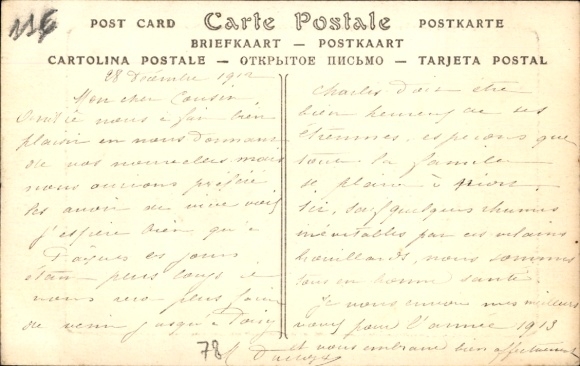 115
POST CARD Carte Postale POSTKARTE
BRIEFKAART — POSTKAART
CARTOLINA POSTALE — ОТКРЫТОЕ ПИСЬМО — TARJETA POSTAL
28 Décembre 1912
Mon cher Cousin,
nous a fait bien
plaisir en nous donnant
de vos nouvelles mais
nous aurions préféré
les avoir de vive voix
J'espère bien qu'à
Pâques les jours
étant plus longs
vous plus
de venir jusqu'à
Charles doit être
bien heureux de ses
étrennes, espérons que
toute la famille
se plaira à Niort.
Ici, sauf quelques rhumes
inévitables par ces vilains
brouillards, nous sommes
tous en bonne santé.
Je vous envoie mes meilleurs
voeux pour l'année 1913
et vous embrasse bien affectueusement
78